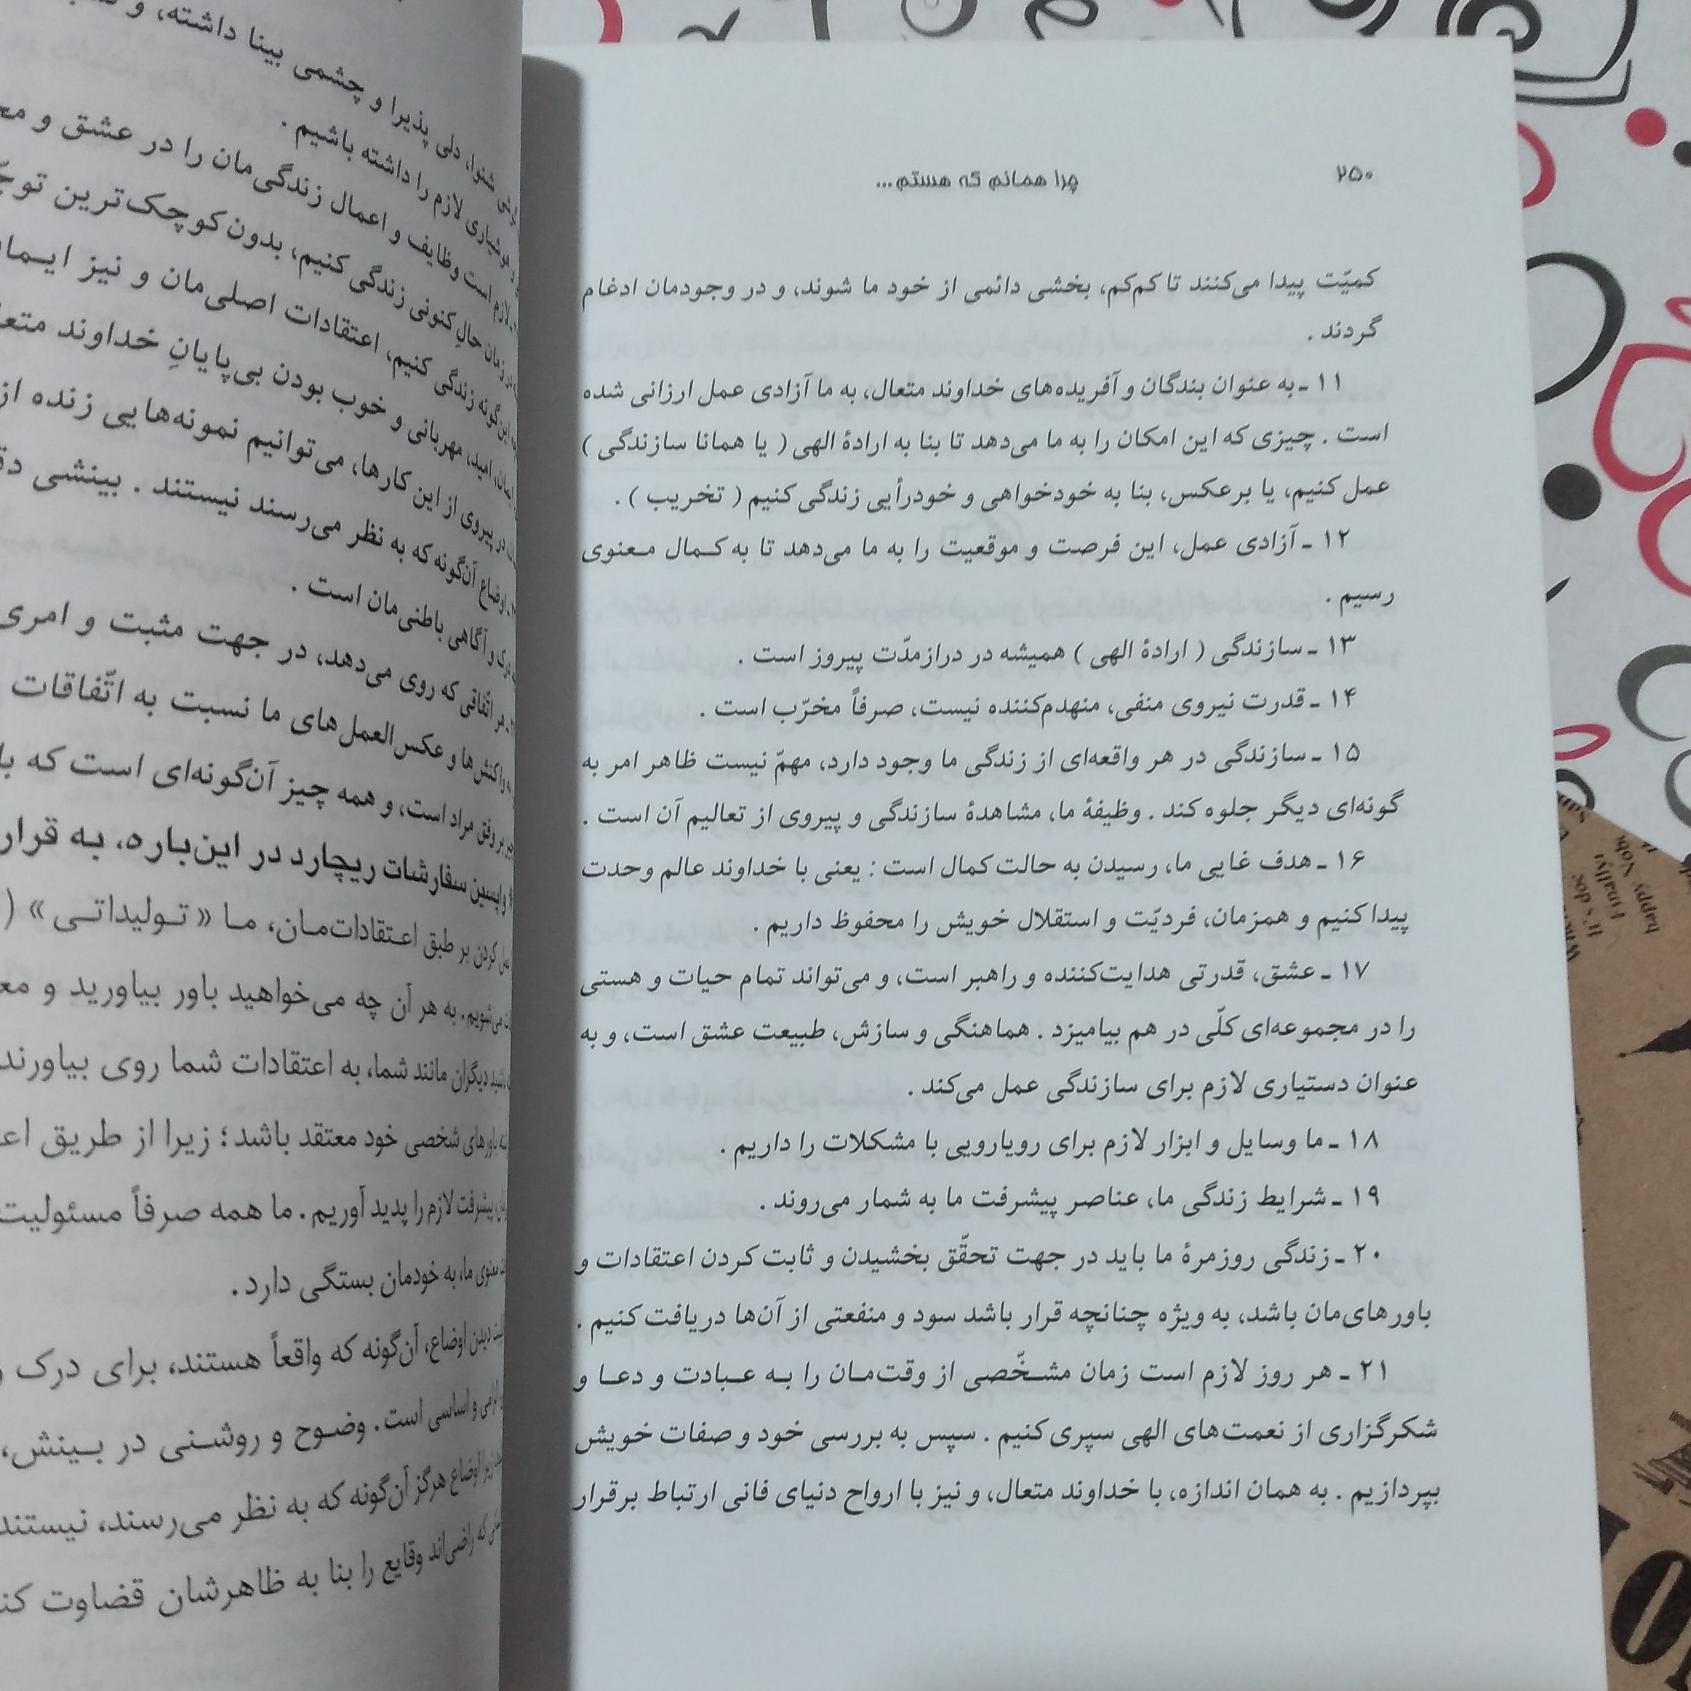 ۲۵۰
چرا همانم که هستم...
کمیّت پیدا می‌کنند تا کم‌کم، بخشی دائمی از خود ما شوند، و در وجودمان ادغام
گردند .
۱۱ ـ به عنوان بندگان و آفریده‌های خداوند متعال، به ما آزادی عمل ارزانی شده
است . چیزی که این امکان را به ما می‌دهد تا بنا به ارادهٔ الهی ( یا همانا سازندگی )
عمل کنیم، یا برعکس، بنا به خودخواهی و خودرأیی زندگی کنیم ( تخریب ) .
۱۲ ـ آزادی عمل، این فرصت و موقعیت را به ما می‌دهد تا به کـمال مـعنوی
رسیم .
۱۳ ـ سازندگی ( ارادهٔ الهی ) همیشه در درازمدّت پیروز است .
۱۴ ـ قدرت نیروی منفی، منهدم‌کننده نیست، صرفاً مخرّب است .
۱۵ ـ سازندگی در هر واقعه‌ای از زندگی ما وجود دارد، مهمّ نیست ظاهر امر به
گونه‌ای دیگر جلوه کند . وظیفهٔ ما، مشاهدهٔ سازندگی و پیروی از تعالیم آن است .
۱۶ ـ هدف غایی ما، رسیدن به حالت کمال است : یعنی با خداوند عالم وحدت
پیدا کنیم و همزمان، فردیّت و استقلال خویش را محفوظ داریم .
۱۷ ـ عشق، قدرتی هدایت‌کننده و راهبر است، و می‌تواند تمام حیات و هستی
را در مجموعه‌ای کلّی در هم بیامیزد . هماهنگی و سازش، طبیعت عشق است، و به
عنوان دستیاری لازم برای سازندگی عمل می‌کند .
۱۸ ـ ما وسایل و ابزار لازم برای رویارویی با مشکلات را داریم .
۱۹ ـ شرایط زندگی ما، عناصر پیشرفت ما به شمار می‌روند .
۲۰ ـ زندگی روزمرهٔ ما باید در جهت تحقّق بخشیدن و ثابت کردن اعتقادات و
باورهای‌مان باشد، به ویژه چنانچه قرار باشد سود و منفعتی از آن‌ها دریافت کنیم .
۲۱ ـ هر روز لازم است زمان مشـخّصی از وقت‌مـان را بـه عـبادت و دعـا و
شکرگزاری از نعمت‌های الهی سپری کنیم . سپس به بررسی خود و صفات خویش
بپردازیم . به همان اندازه، با خداوند متعال، و نیز با ارواح دنیای فانی ارتباط برقرار
شنوا، دلی پذیرا و چشمی بینا داشته، و
هوشیاری لازم را داشته باشیم .
لازم است وظایف و اعمال زندگی‌مان را در عشق و
زمان حالِ کنونی زندگی کنیم، بدون کوچک‌ترین
این‌گونه زندگی کنیم، اعتقادات اصلی‌مان و نیز
امید، مهربانی و خوب بودن بی‌پایانِ خداوند
در پیروی از این کارها، می‌توانیم نمونه‌هایی زنده از
اوضاع آن‌گونه که به نظر می‌رسند نیستند . بینشی
و آگاهی باطنی‌مان است .
هر اتّفاقی که روی می‌دهد، در جهت مثبت و امری
واکنش‌ها و عکس‌العمل‌های ما نسبت به اتّفاقات
بر وفق مراد است، و همه چیز آن‌گونه‌ای است که
واپسین سفارشات ریچارد در این‌باره، به قرار
کردن بر طبق اعـتقادات‌مـان، مـا « تـولیداتـی » (
می‌شویم . به هر آن چه می‌خواهید باور بیاورید و
دیگران مانند شما، به اعتقادات شما روی بیاورند
باورهای شخصی خود معتقد باشد ؛ زیرا از طریق
پیشرفت لازم را پدید آوریم . ما همه صرفاً مسئولیت
معنوی ما، به خودمان بستگی دارد .
دیدن اوضاع، آن‌گونه که واقعاً هستند، برای درک
و اساسی است . وضـوح و روشـنی در بـینش،
زیرا اوضاع هرگز آن‌گونه که به نظر می‌رسند، نیستند
که راضی‌اند وقایع را بنا به ظاهرشان قضاوت